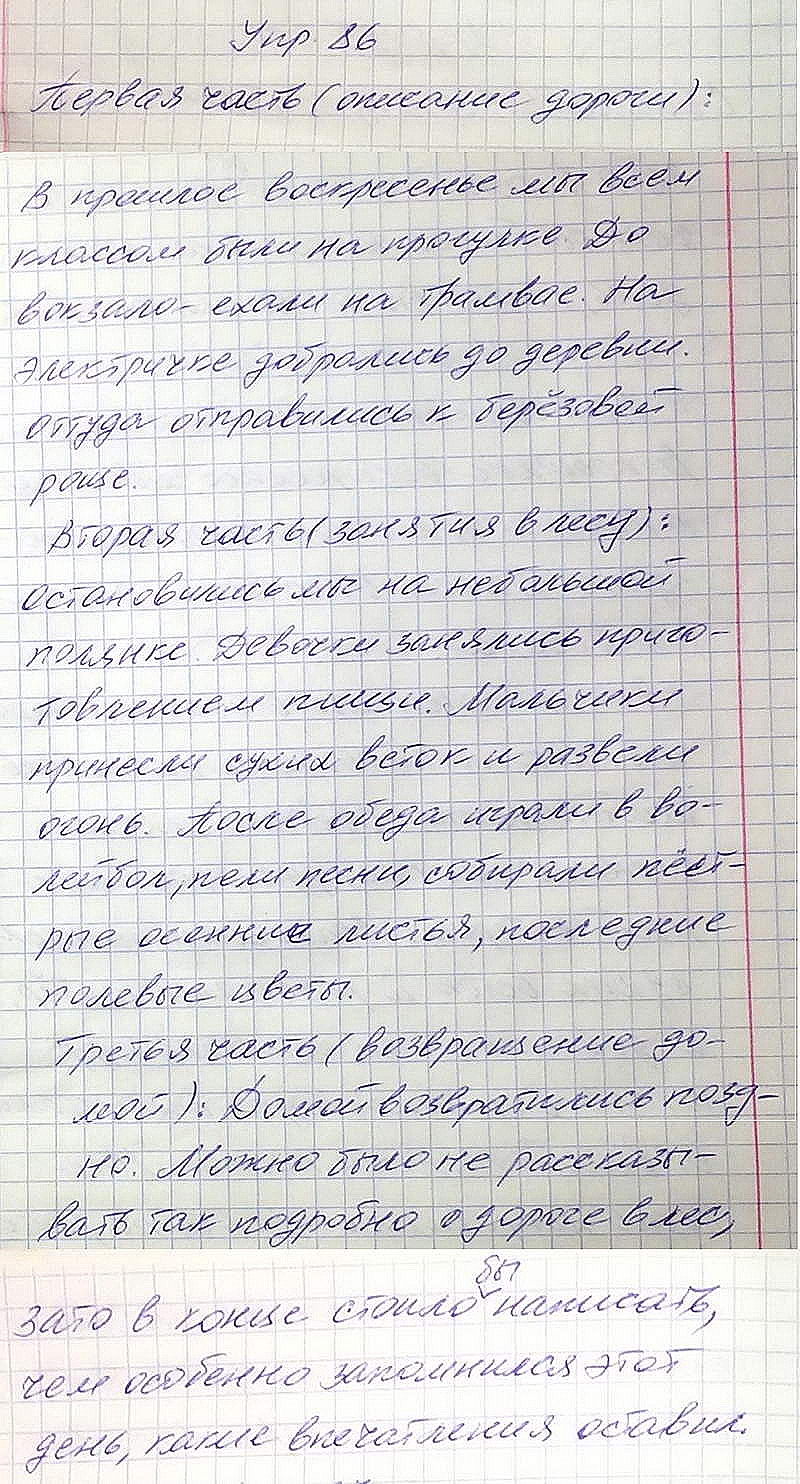 Упр. 86
Первая часть (описание дороги):
В прошлое воскресенье мы всем
классом были на прогулке. До
вокзала ехали на трамвае. На
электричке добрались до деревни.
Оттуда отправились к берёзовой
роще.
Вторая часть (занятия в лесу):
Остановились мы на небольшой
полянке. Девочки занялись приго-
товлением пищи. Мальчики
принесли сухих веток и развели
огонь. После обеда играли в во-
лейбол, пели песни, собирали пёст-
рые осенние листья, последние
полевые цветы.
Третья часть (возвращение до-
мой): Домой возвратились позд-
но. Можно было не рассказы-
вать так подробно о дороге в лес,
зато в конце стоило бы написать,
чем особенно запомнился этот
день, какие впечатления оставил.